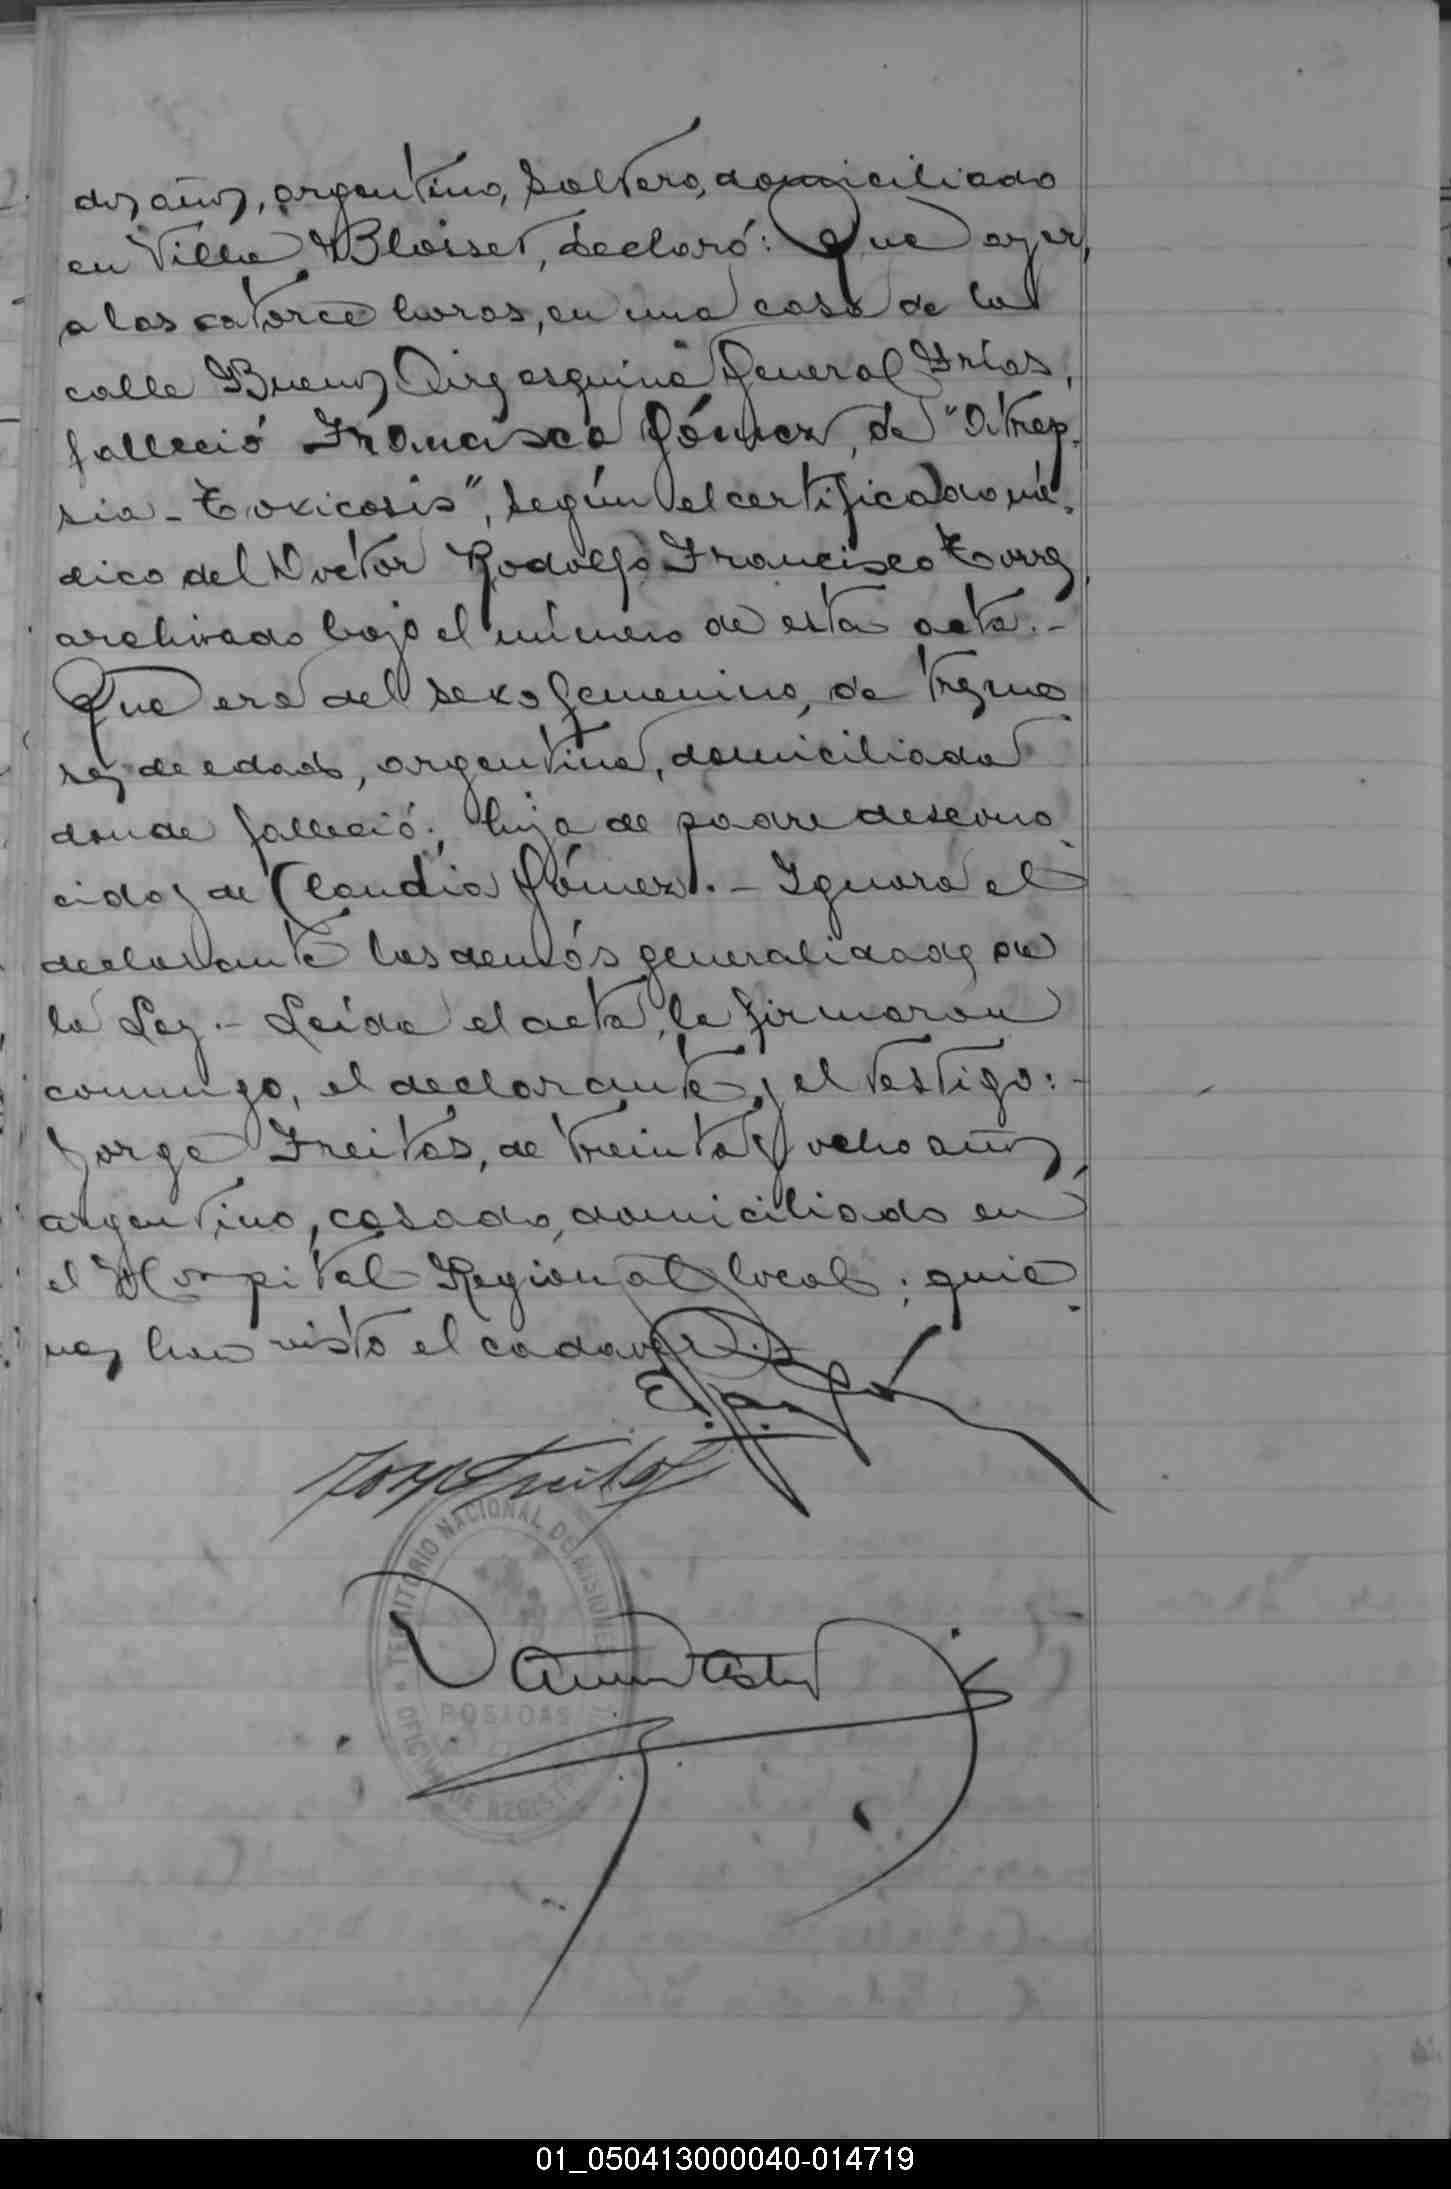 dos años, argentino, soltero, domiciliado
en Villa Bloisset, declaró: Que ayer,
a las catorce horas, en una casa de la
calle Buenos Aires esquina General Frías,
falleció Francisca Gómez, de "Atrep-
sia - Toxicosis", según el certificado mé-
dico del Doctor Rodolfo Francisco Torres,
archivado bajo el número de esta acta. -
Que era del sexo femenino, de tres me-
ses de edad, argentina, domiciliada
donde falleció; hija de padre descono-
cido y de Claudia Gómez. - Ignora el
declarante las demás generalidades de
la Ley. - Leída el acta, la firmaron
conmigo, el declarante y el testigo: -
Jorge Freitas, de treinta y ocho años,
argentino, casado, domiciliado en
el Hospital Regional local; quie-
nes han visto el cadáver. -
Jorge Freitas
TERRITORIO NACIONAL DE MISIONES
POSADAS
OFICINA DE REGISTRO
01_050413000040-014719